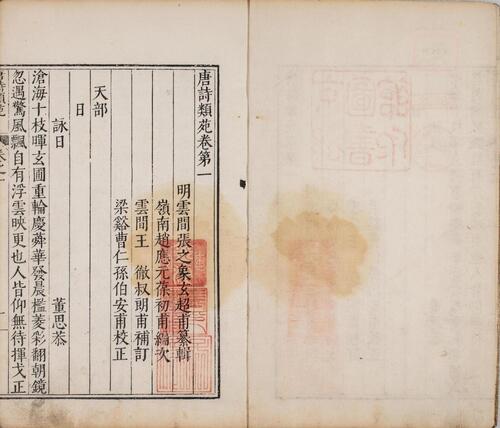 唐詩類苑卷第一
明雲間張之象玄超甫纂輯
嶺南趙應元葆初甫編次
雲間王徹叔朗甫補訂
梁谿曹仁孫伯安甫校正
天部
日
詠日 董思恭
滄海十枝暉玄圃重輪慶蕣華發晨檻菱彩翻朝鏡
忽遇驚風飄自有浮雲映更也人皆仰無待揮戈正